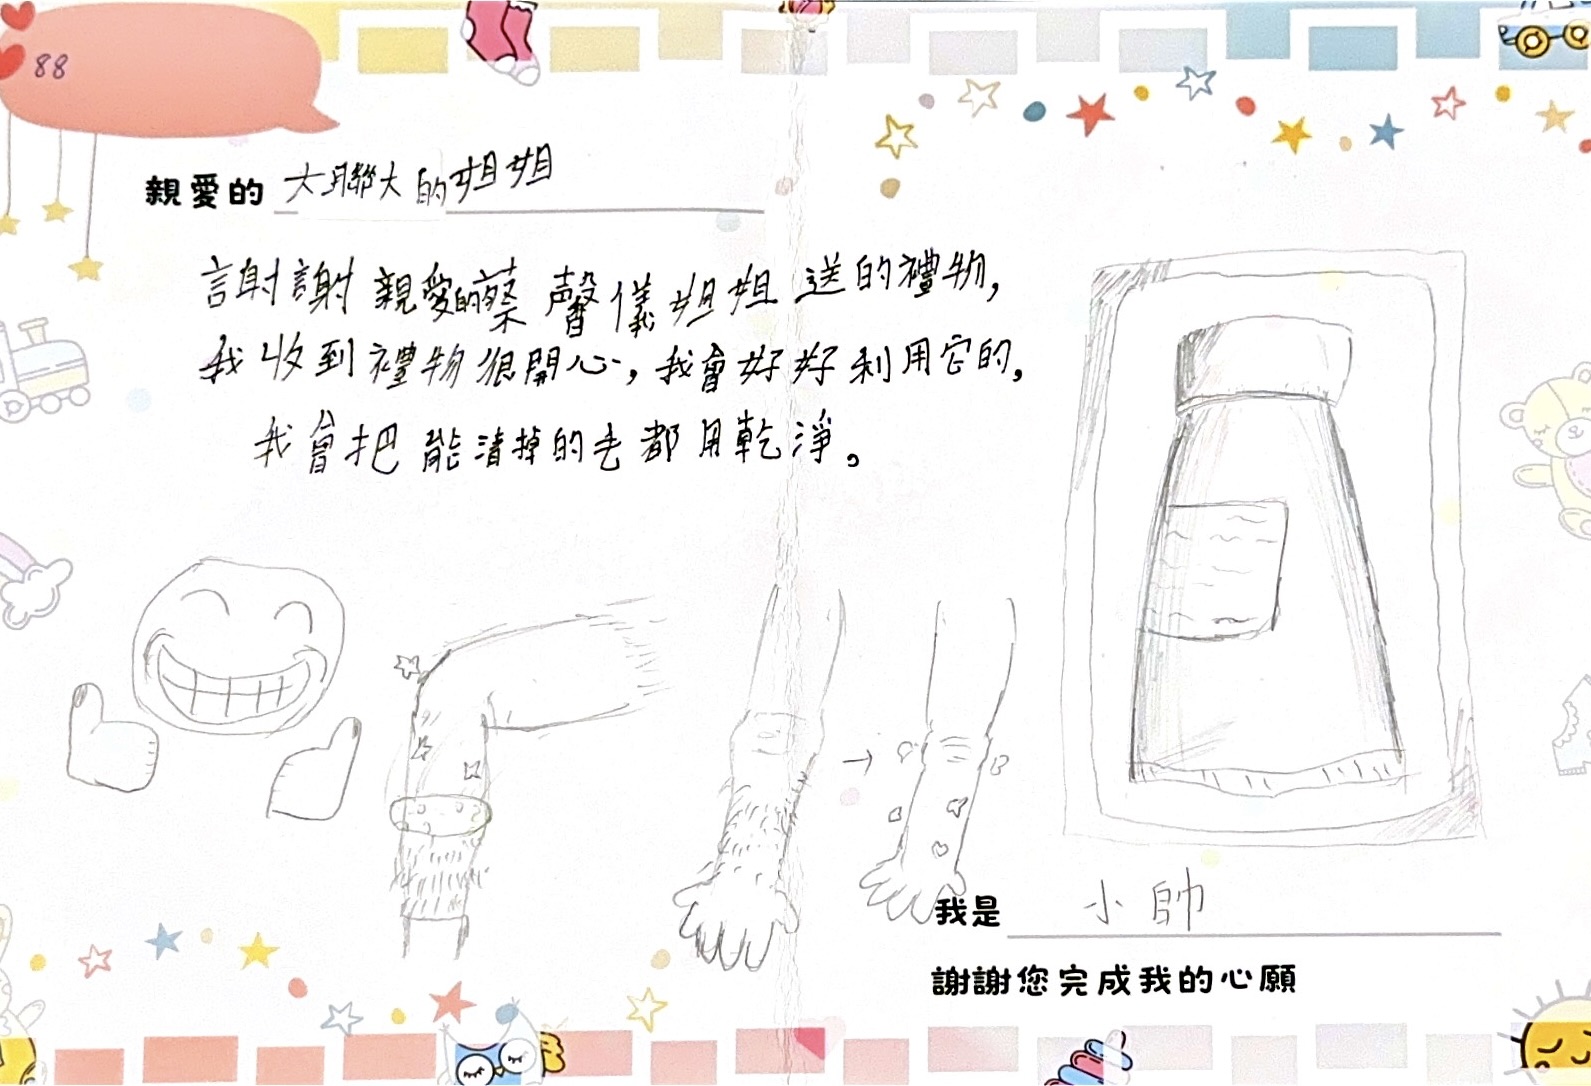 88
親愛的 大聯大的姐姐
謝謝親愛的蔡馨儀姐姐送的禮物,
我收到禮物很開心,我會好好利用它的,
我會把能清掉的毛都用乾淨。
我是 小帥
謝謝您完成我的心願